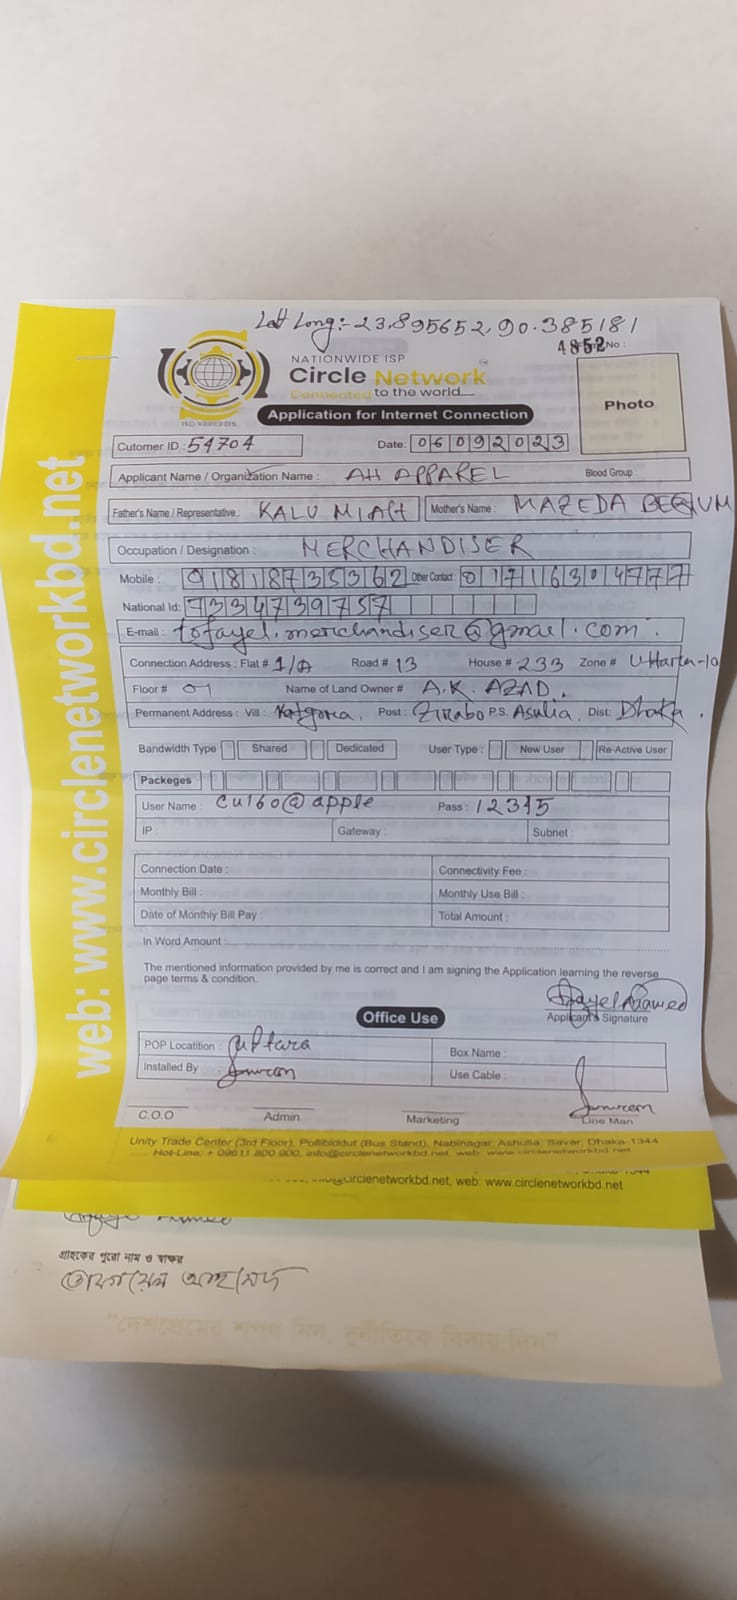 Lat Long:- 23.895652, 90.385181
4852 No :
NATIONWIDE ISP
Circle Network
Connected to the world....
ISO 9001:2015
Application for Internet Connection
Photo
Cutomer ID : 54704 Date: 06092023
Applicant Name / Organization Name : AH APPAREL Blood Group :
Father's Name / Representative : KALU MIAH Mother's Name : MAZEDA BEGUM
Occupation / Designation : MERCHANDISER
Mobile : 01818735362 Other Contact 01716304777
National Id: 7334739757
E-mail : tofayel.merchandiser@gmail.com.
Connection Address : Flat # 1/A Road # 13 House # 233 Zone # Uttara-10
Floor # 01 Name of Land Owner # A.K. AZAD.
Permanent Address : Vill : Post : Zirabo P.S. Asulia, Dist: Dhaka.
Bandwidth Type Shared Dedicated User Type : New User Re-Active User
Packeges
User Name : cu160@apple Pass : 12345
IP : Gateway : Subnet :
Connection Date : Connectivity Fee :
Monthly Bill : Monthly Use Bill :
Date of Monthly Bill Pay : Total Amount :
In Word Amount :
The mentioned information provided by me is correct and I am signing the Application learning the reverse
page terms & condition.
Tofayel Ahamed
Applicant's Signature
Office Use
POP Locatition : Uttara Box Name :
Installed By : Use Cable :
C.O.O Admin Marketing Line Man
Unity Trade Center (3rd Floor), Pollibiddut (Bus Stand), Nabinagar, Ashulia, Savar, Dhaka-1344
Hot-Line: + 09611 800 900, info@circlenetworkbd.net, web: www.circlenetworkbd.net
web: www.circlenetworkbd.net
info@circlenetworkbd.net, web: www.circlenetworkbd.net
গ্রাহকের পুরো নাম ও স্বাক্ষর
তোফায়েল আহামেদ
"দেশপ্রেমের শপথ নিন, দুর্নীতিকে বিদায় দিন"